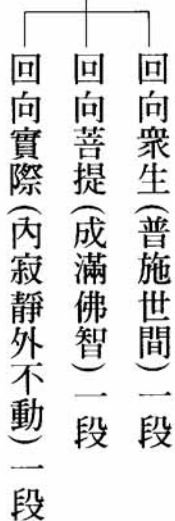 回向衆生(普施世間)一段
回向菩提(成滿佛智)一段
回向實際(內寂靜外不動)一段